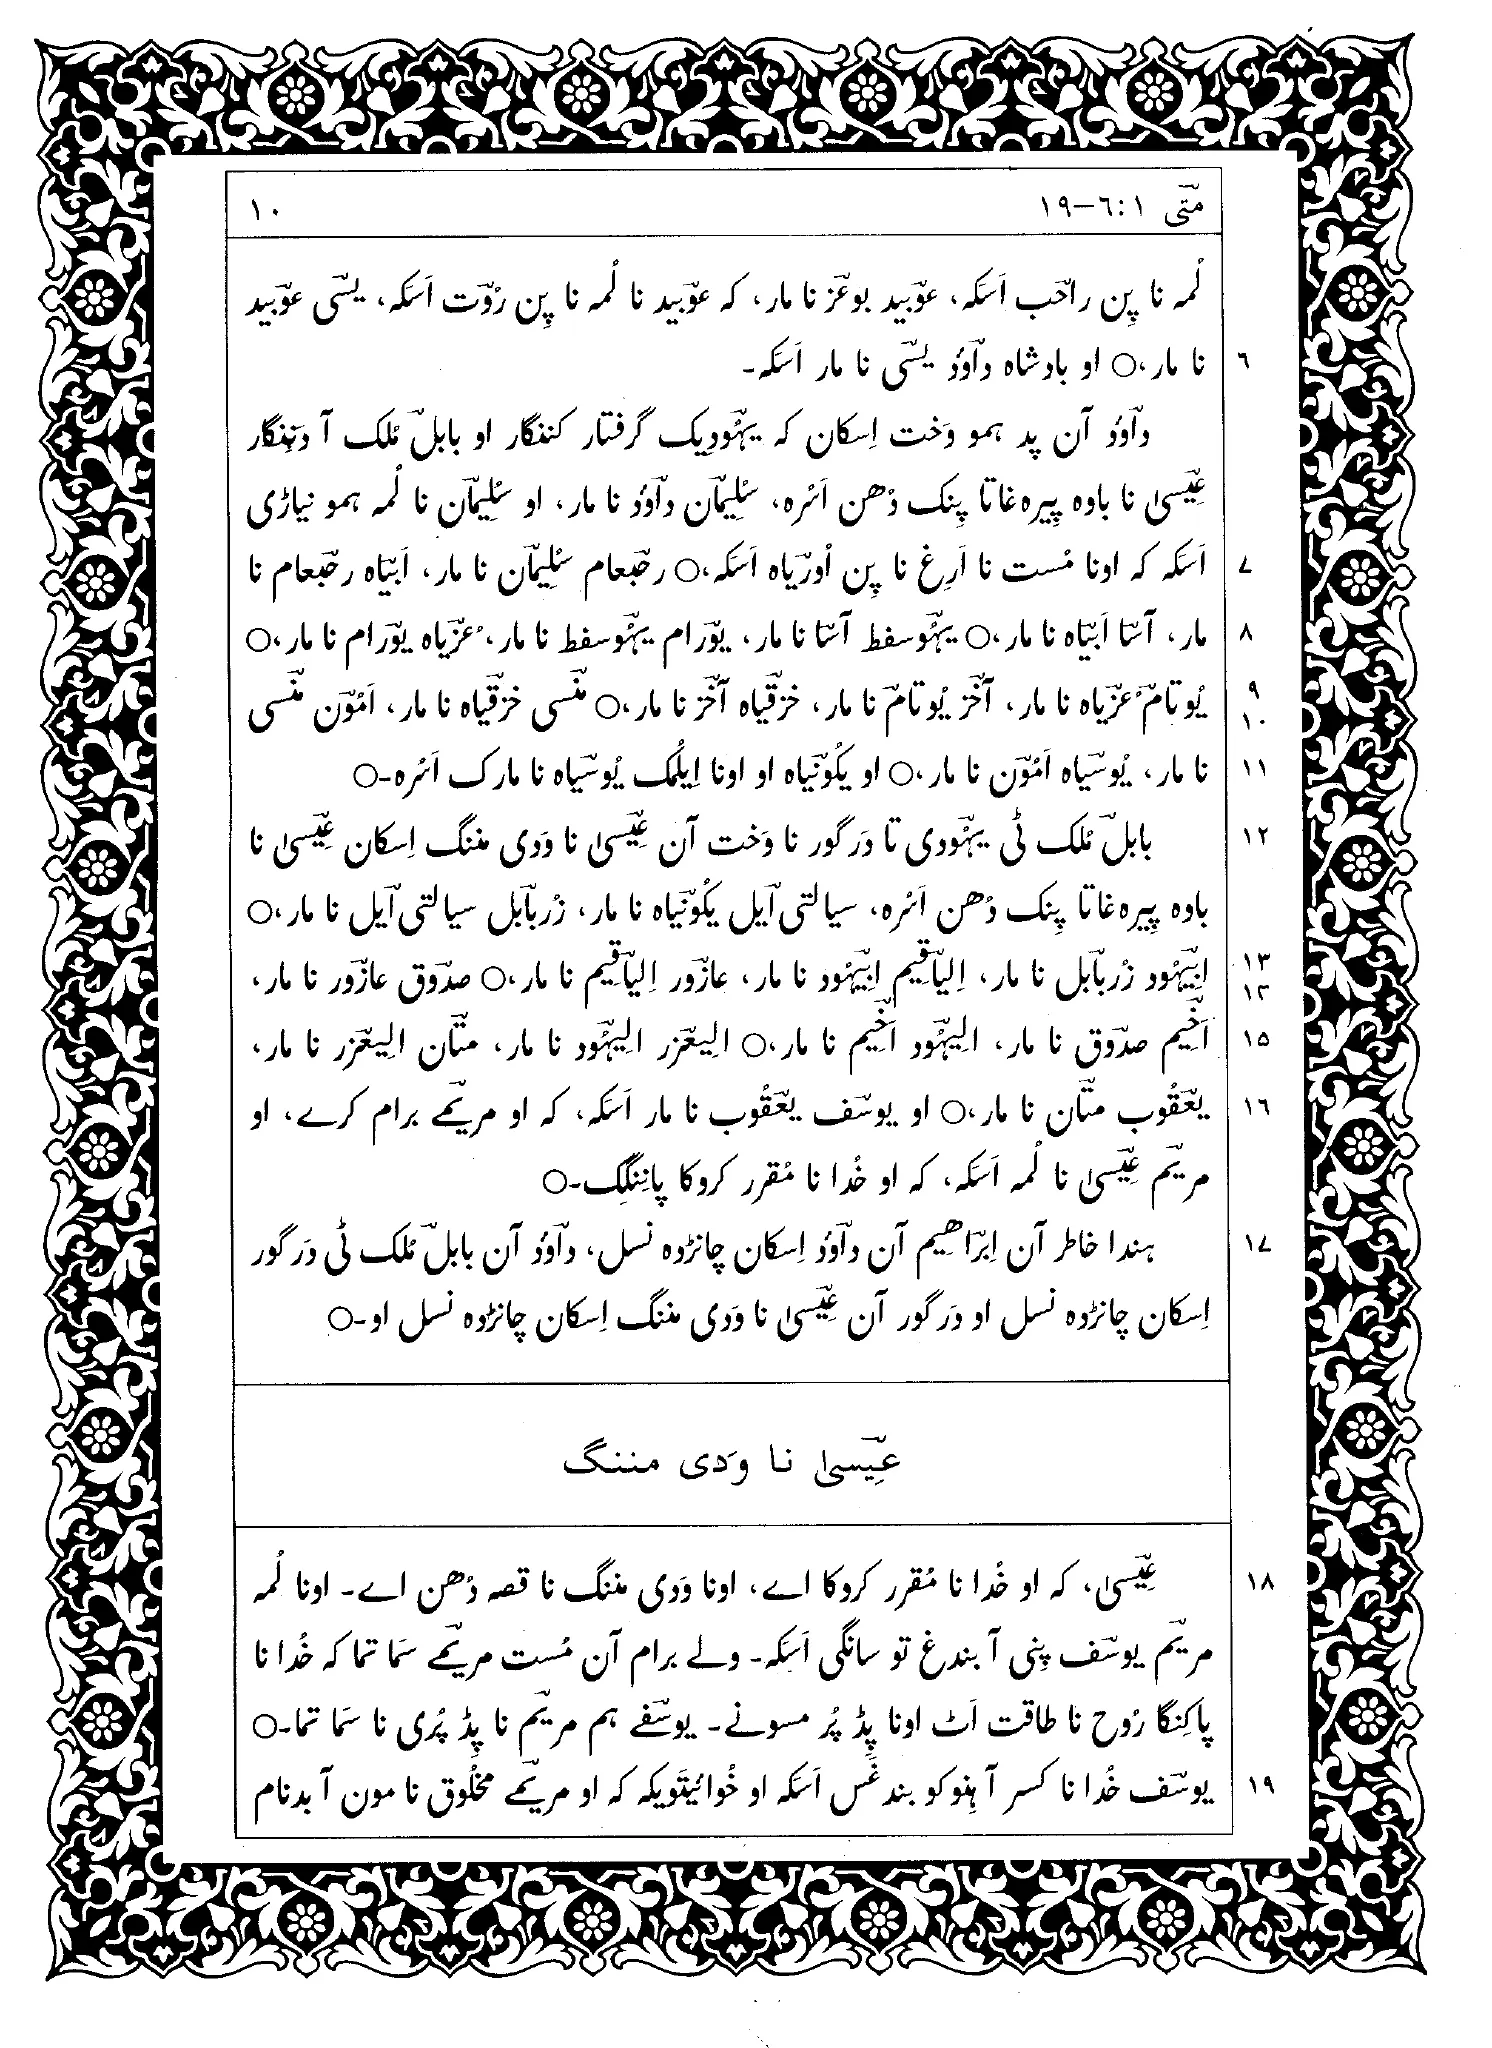 متّی ۱:۶–۱۹ ۱۰
لُمه نا پِن راحب اَسّکه، عوبید بوعز نا مار، که عوبید نا لُمه نا پِن رُوت اَسّکه، یسّی عوبید
۶ نا مار،○ او بادشاه داؤد یسّی نا مار اَسّکه۔
داؤد آن پد همو وَخت اِسکان که یہودیک گرفتار کننگار او بابل مُلک آ دننگار
عیسیٰ نا باوه پِیره‌غاتا پِنک دُهن اَسُّره، سُلیمان داؤد نا مار، او سُلیمان نا لُمه همو نیاڑی
۷ اَسّکه که اونا مُست نا اَرِغ نا پِن اُوریاه اَسّکه،○ رحبعام سُلیمان نا مار، اَبیّاه رحبعام نا
۸ مار، آسّا اَبیّاه نا مار،○ یہوسفط آسّا نا مار، یورام یہوسفط نا مار، عُزیّاه یورام نا مار،○
۹ ۱۰ یُوتام عُزیّاه نا مار، آخز یُوتام نا مار، خزقیاه آخز نا مار،○ منسّی خزقیاه نا مار، اَمُون منسّی
۱۱ نا مار، یُوسیاه اَمُون نا مار،○ او یکُونیاه او اونا اِیلُمک یُوسیاه نا مارک اَسُّره۔○
۱۲ بابل مُلک ٹی یہودی تا دَرگور نا وَخت آن عیسیٰ نا وَدی مننگ اِسکان عیسیٰ نا
باوه پِیره‌غاتا پِنک دُهن اَسُّره، سیالتی‌آیل یکُونیاه نا مار، زُربابل سیالتی‌آیل نا مار،○
۱۳ ۱۴ اَبیہُود زُربابل نا مار، اِلیاقیم اَبیہُود نا مار، عازور اِلیاقیم نا مار،○ صدوق عازور نا مار،
۱۵ اَخیم صدوق نا مار، اِلیہُود اَخیم نا مار،○ اِلیعزر اِلیہُود نا مار، متّان اِلیعزر نا مار،
۱۶ یعقُوب متّان نا مار،○ او یوسف یعقُوب نا مار اَسّکه، که او مریمے برام کرے، او
مریم عیسیٰ نا لُمه اَسّکه، که او خُدا نا مُقرر کروکا پاننگِک۔○
۱۷ ہندا خاطر آن اِبراهیم آن داؤد اِسکان چانڑده نسل، داؤد آن بابل مُلک ٹی دَرگور
اِسکان چانڑده نسل او دَرگور آن عیسیٰ نا وَدی مننگ اِسکان چانڑده نسل او۔○
عیسیٰ نا وَدی مننگ
۱۸ عیسیٰ، که او خُدا نا مُقرر کروکا اے، اونا وَدی مننگ نا قصه دُهن اے۔ اونا لُمه
مریم یوسف پِنی آ بندغ تو سانگی اَسّکه۔ ولے برام آن مُست مریمے سَما تما که خُدا نا
پاکِنگا رُوح نا طاقت اَٹ اونا پِڈ پُر مسونے۔ یوسفے هم مریم نا پِڈ پُری نا سَما تما۔○
۱۹ یوسف خُدا نا کسر آ ہِنوکو بندغَس اَسّکه او خُوائیتویکه که او مریمے مخلُوق نا مون آ بدنام